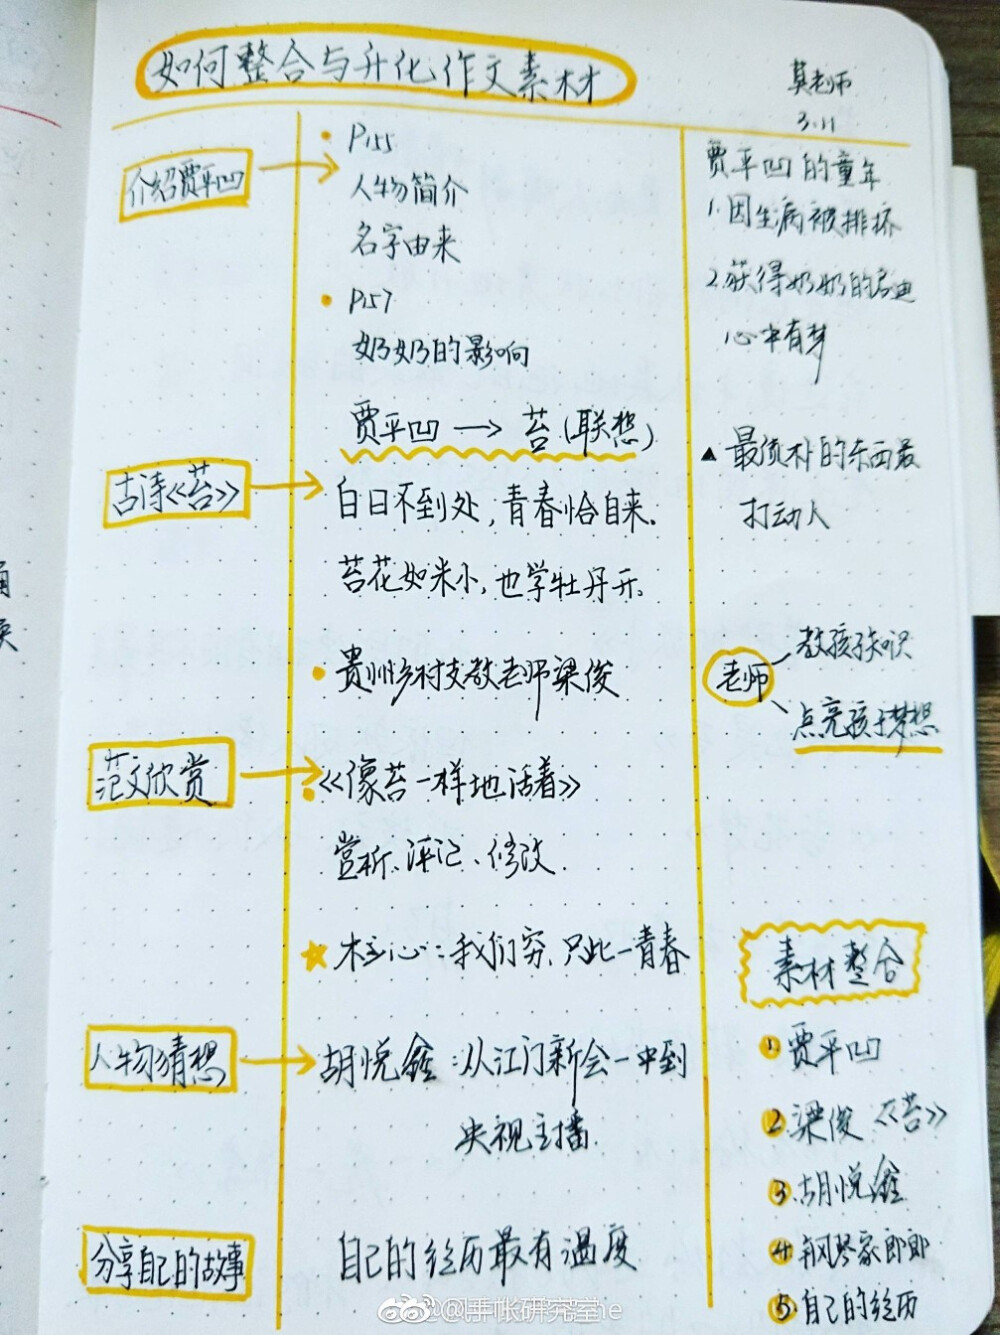 如何整合与升化作文素材
莫老师
3.11
介绍贾平凹
P155
人物简介
名字由来
P157
奶奶的影响
贾平凹 → 苔(联想)
贾平凹的童年
1.因生病被排挤
2.获得奶奶的启迪
心中有梦
古诗《苔》
白日不到处,青春恰自来.
苔花如米小,也学牡丹开.
贵州乡村支教老师梁俊
▲ 最质朴的东西最
打动人
老师
教孩子知识
点亮孩子梦想
范文欣赏
《像苔一样地活着》
赏析、评记、修改
★ 核心:我们穷,只此一青春
人物猜想
胡悦鑫:从江门新会一中到
央视主播
分享自己的故事
自己的经历最有温度
素材整合
1.贾平凹
2.梁俊《苔》
3.胡悦鑫
4.钢琴家郎郎
5.自己的经历
@手帐研究室